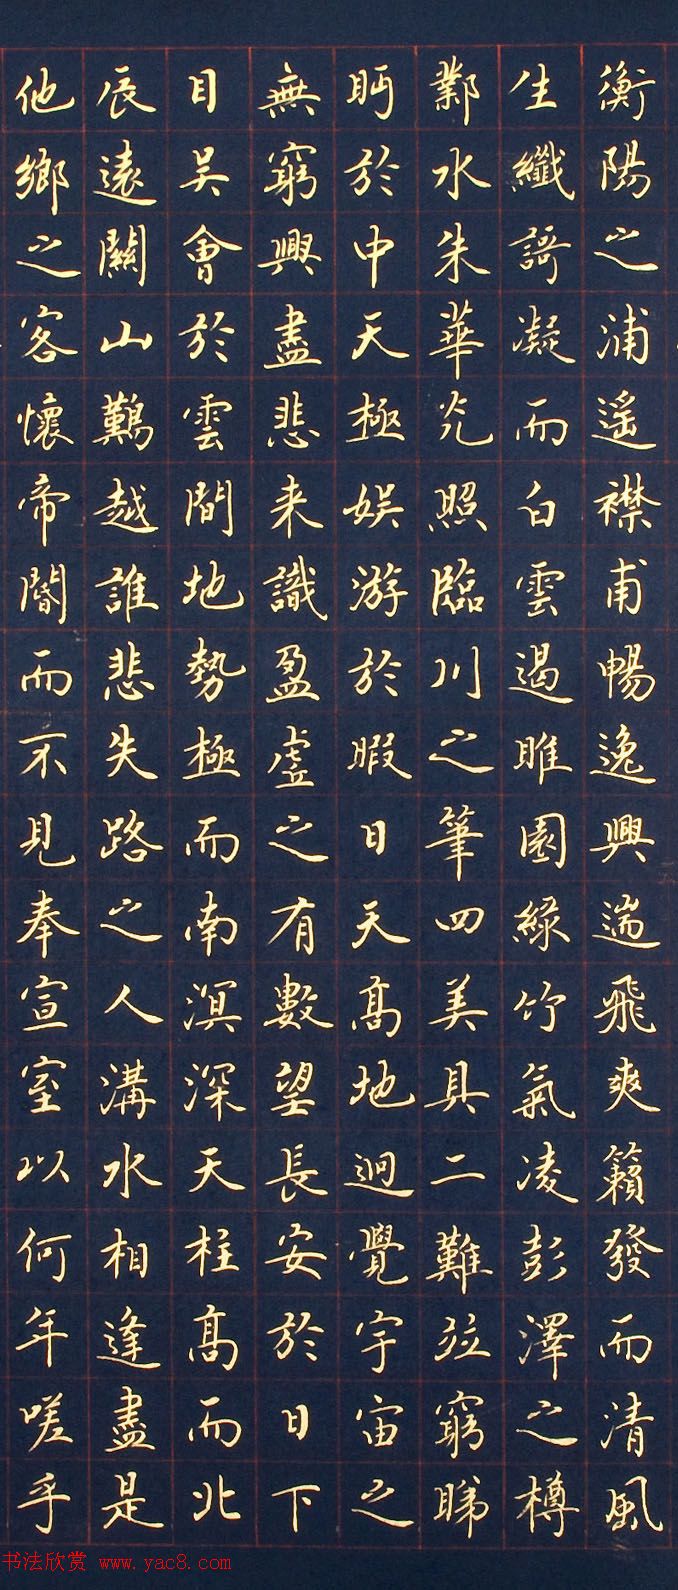 衡陽之浦遥襟甫暢逸興遄飛爽籟發而清風
生纖謌凝而白雲遏睢園綠竹氣凌彭澤之樽
鄴水朱華光照臨川之筆四美具二難竝窮睇
眄於中天極娱游於暇日天髙地迥覺宇宙之
無窮興盡悲来識盈虛之有數望長安於日下
目吴會於雲間地勢極而南溟深天柱髙而北
辰遠關山難越誰悲失路之人溝水相逢盡是
他鄉之客懷帝閽而不見奉宣室以何年嗟乎
书法欣赏 www.yac8.com